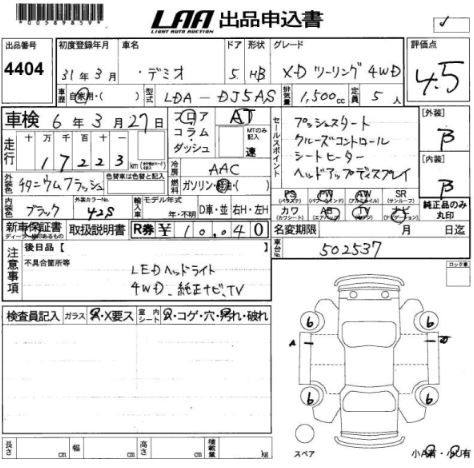 *00589859*
LAA 出品申込書
LIGHT AUTO AUCTION
出品番号 初度登録年月 車名 ドア 形状 グレード 評価点
4404 31年3月 ・デミオ 5 HB XD ツーリング 4WD 4.5
車歴 自家用・( ) 型式 LDA-DJ5AS 排気量 1,500cc 定員 5人
車検 6年3月27日 フロア コラム ダッシュ AT MTのみ記入 速
セールスポイント
プッシュスタート
クルーズコントロール
シートヒーター
ヘッドアップディスプレイ
[外装]
B
[内装]
B
走行 十万 万 千 百 十 一
17223 km
冷房 AAC
外装色 チタニウムフラッシュ 色替車は色替と記入
燃料 ガソリン・軽油・( )
内装色 ブラック カラーNo. 42S
輸入車 モデル年式 年・不明 D車・並 右H・左H
PS PW AW SR
(サンルーフ)
カワ AB TV ナビ
純正品のみ丸印
新車保証書 取扱説明書 R券 ¥10,040
名変期限 月 日迄
注意事項
後日品[ ]
不具合箇所等
LEDヘッドライト
4WD、純正ナビ、TV
車台No. 502537
ロック車
検査員記入 ガラス A・X要ス 室内 シート A・コゲ・穴・汚れ・破れ
6 6
A
6 6
長さ cm 幅 cm 高さ cm 積載量 kg
スペア
小A有・小U有